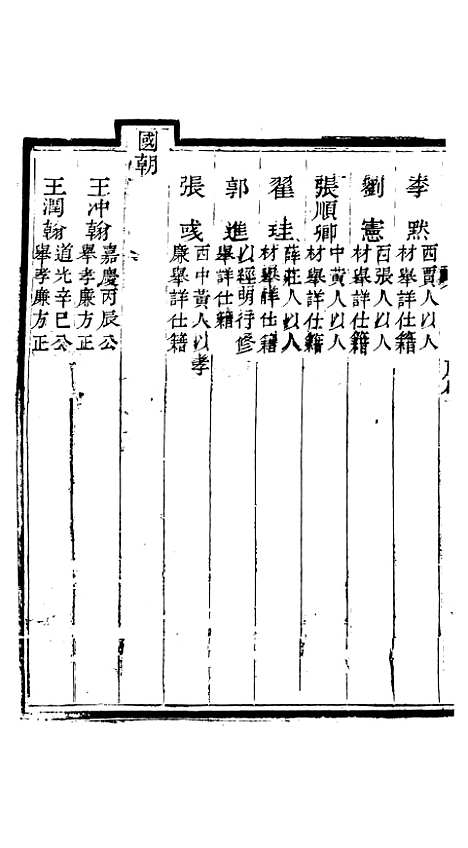 李默 西賈人以人材舉詳仕籍
劉憲 西張人以人材舉詳仕籍
張順卿 中黄人以人材舉詳仕籍
翟珪 薛莊人以人材舉詳仕籍
郭進 以經明行修舉詳仕籍
張彧 西中黄人以孝廉舉詳仕籍
國朝
王冲翰 嘉慶丙辰公舉孝廉方正
王潤翰 道光辛巳公舉孝廉方正